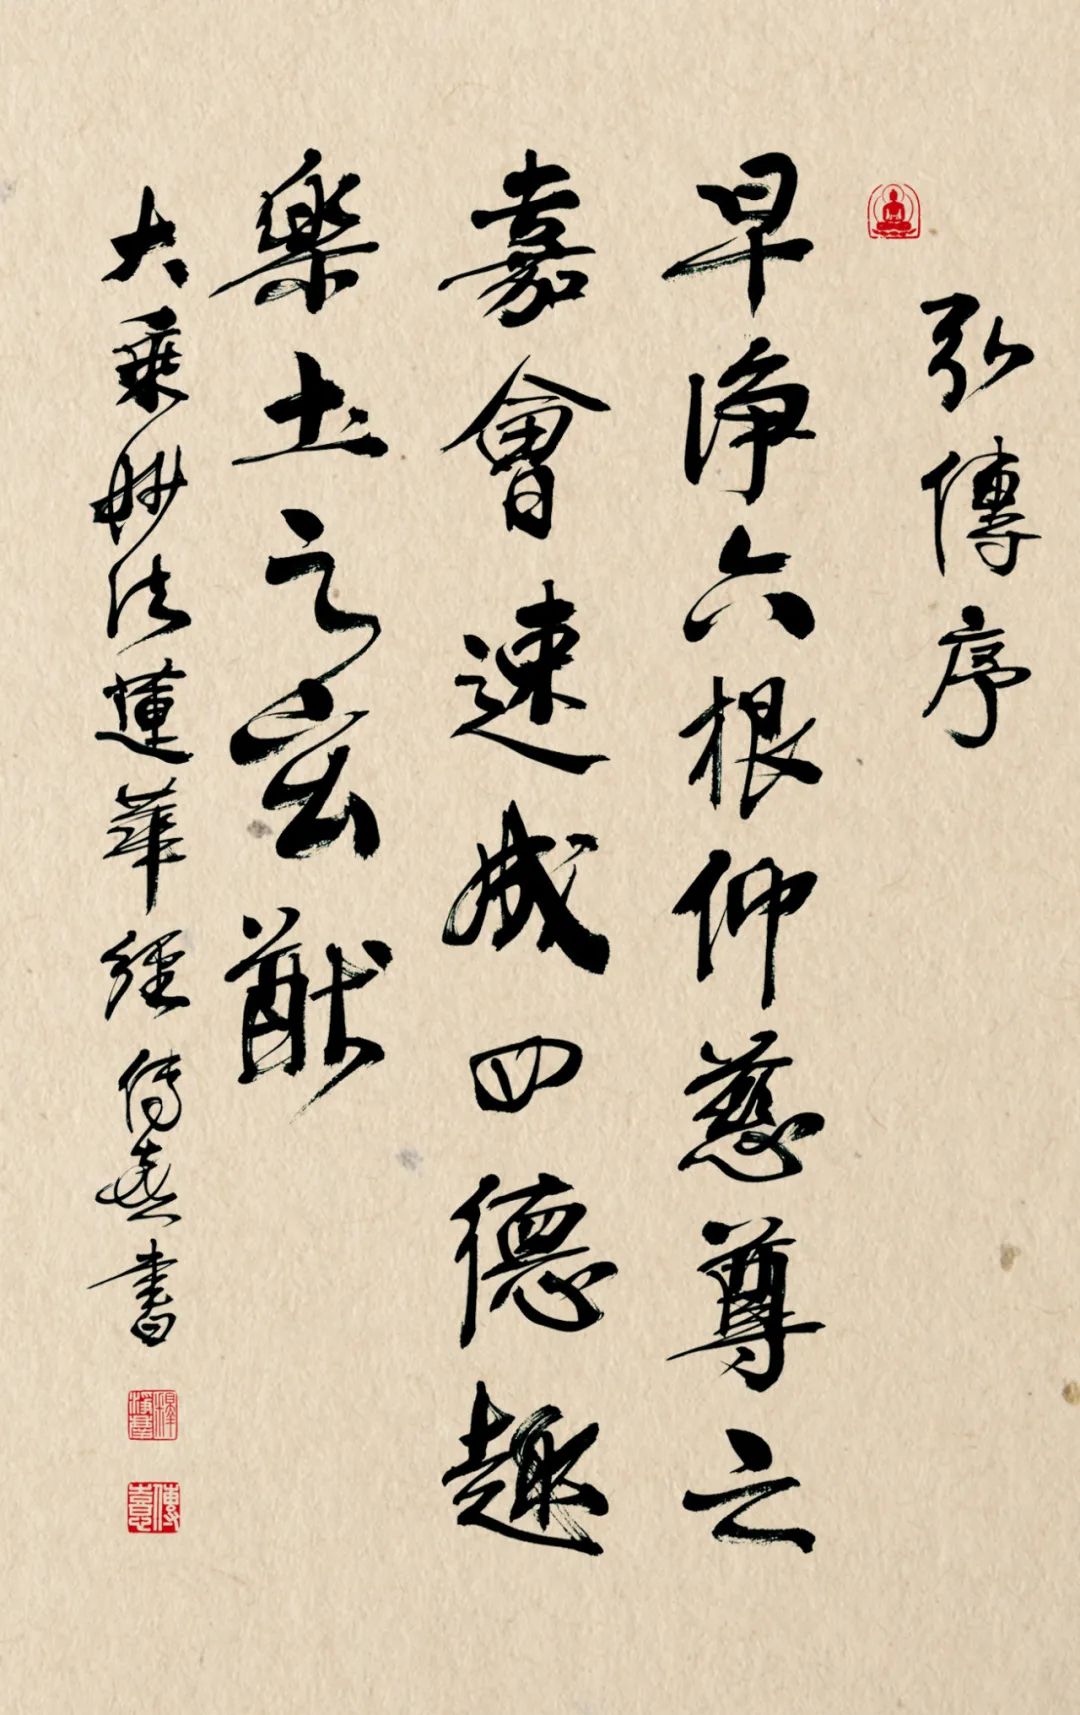 弘傳序
早淨六根仰慈尊之
嘉會速成四德趣
樂土之玄猷
大乘妙法蓮華經 傳喜書